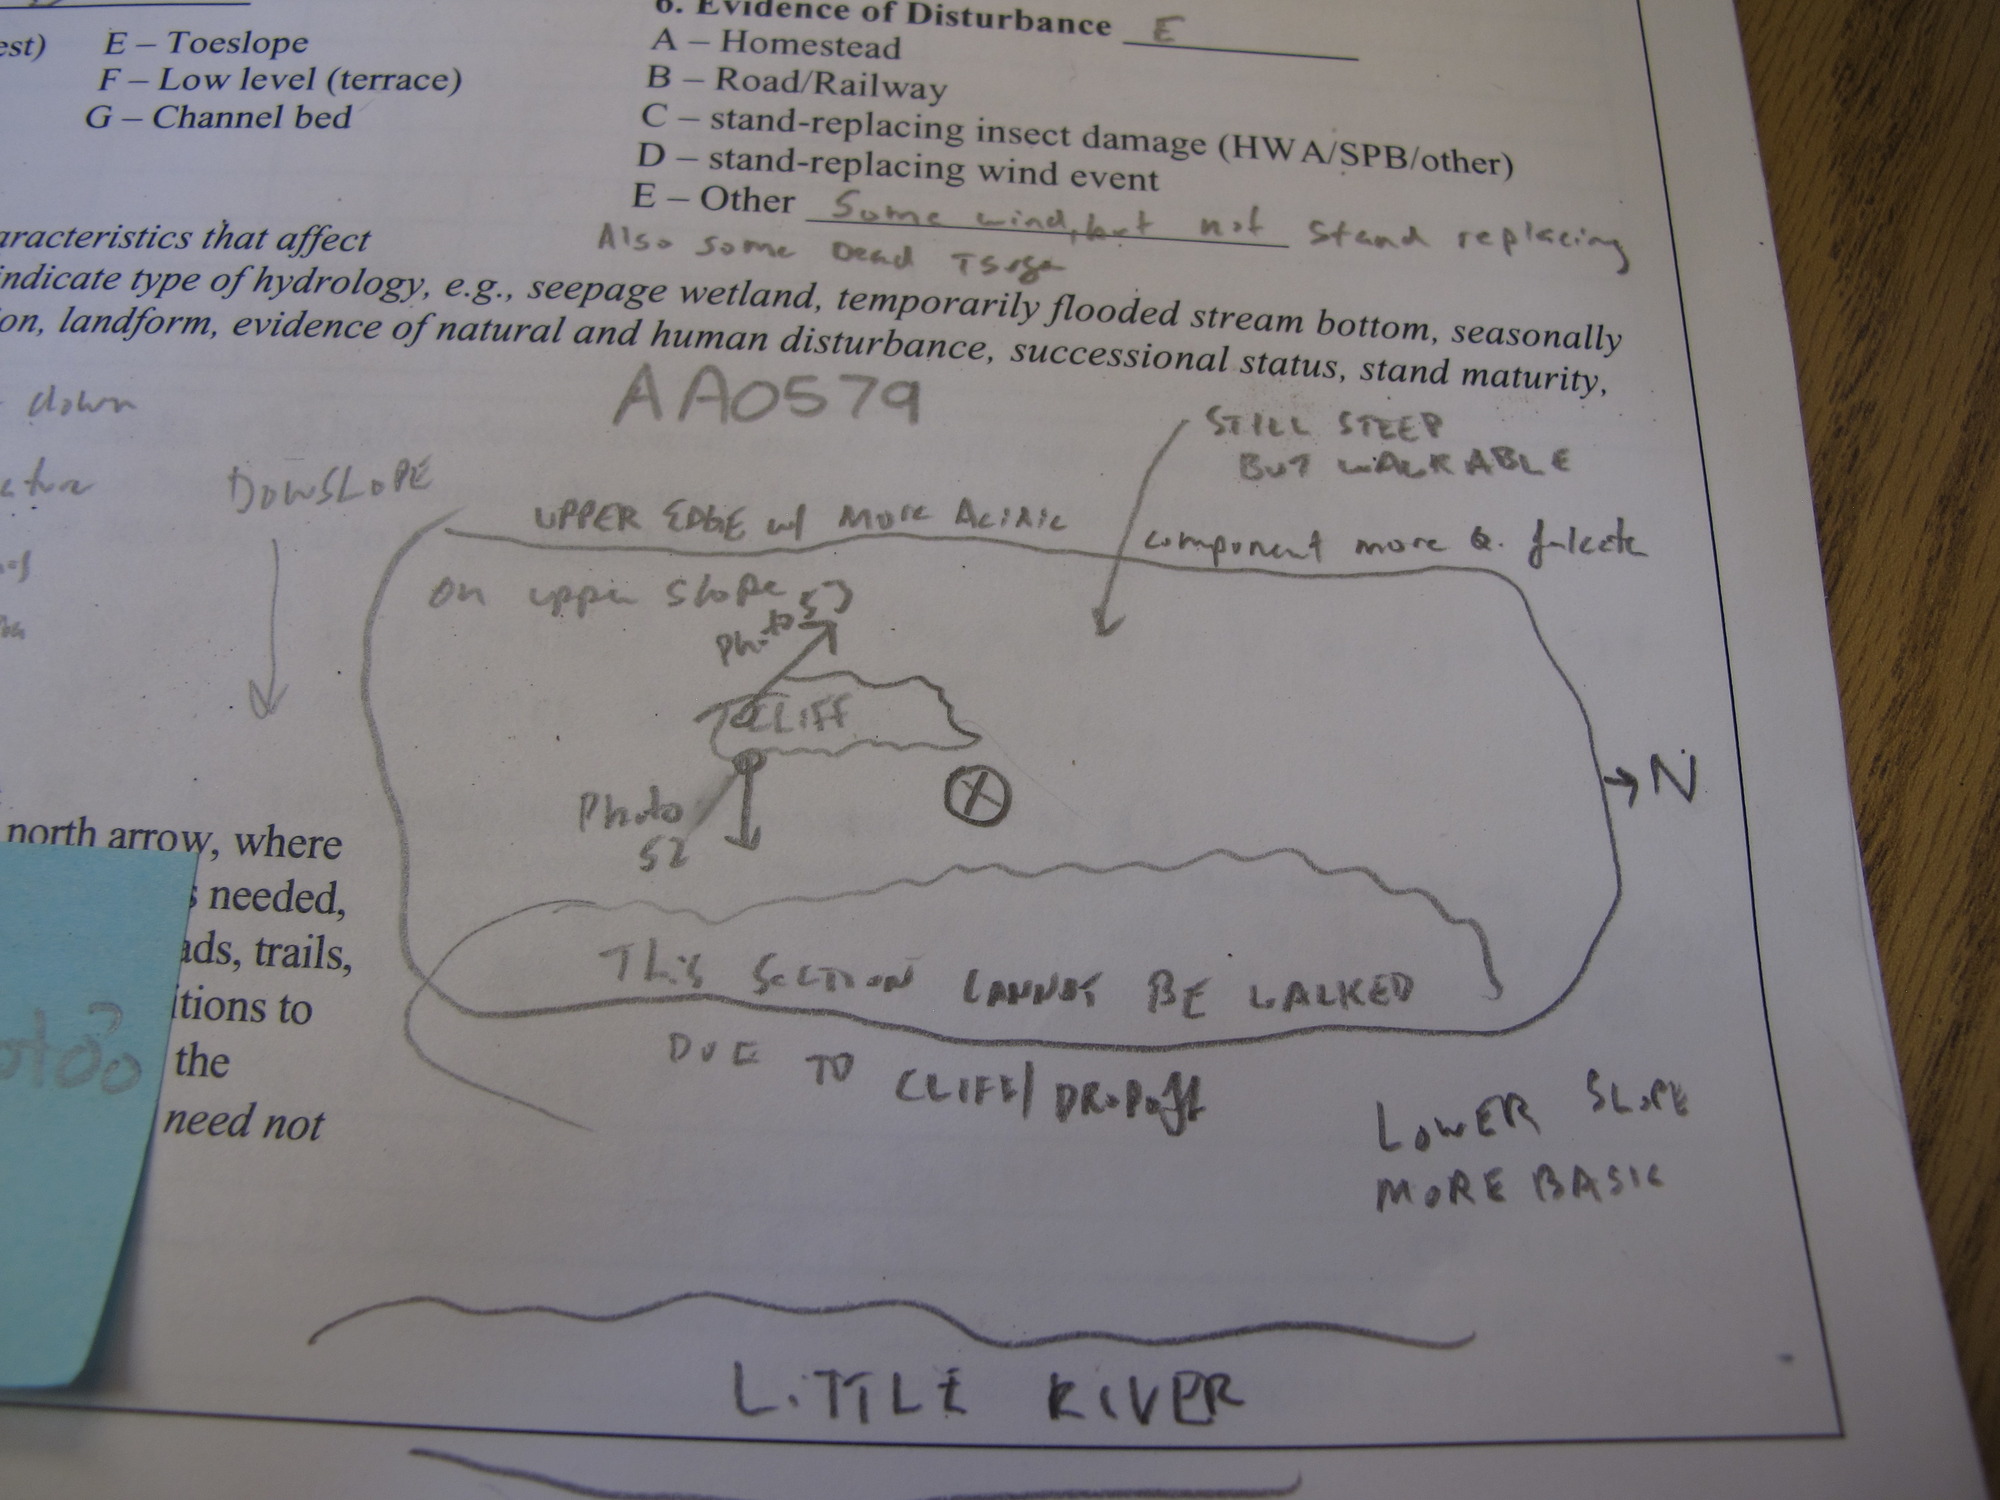 6. Evidence of Disturbance E
est) E – Toeslope
A – Homestead
F – Low level (terrace)
B – Road/Railway
G – Channel bed
C – stand-replacing insect damage (HWA/SPB/other)
D – stand-replacing wind event
E – Other Some wind, but not stand replacing
Also some Dead Tsuga
aracteristics that affect
indicate type of hydrology, e.g., seepage wetland, temporarily flooded stream bottom, seasonally
ion, landform, evidence of natural and human disturbance, successional status, stand maturity,
AA0579
down
STILL STEEP
BUT WALKABLE
DOWSLOPE
UPPER EDGE w/ More Acidic
component more Q. falcata
on upper slope
Photo 53
CLIFF
Photo
52
X
→ N
north arrow, where
s needed,
ads, trails,
itions to
the
need not
This SECTION CANNOT BE WALKED
DUE TO CLIFF/DROPOFF
LOWER SLOPE
MORE BASIC
LITTLE RIVER